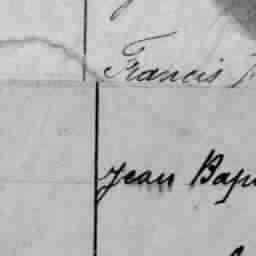 Francis
Jean Bap